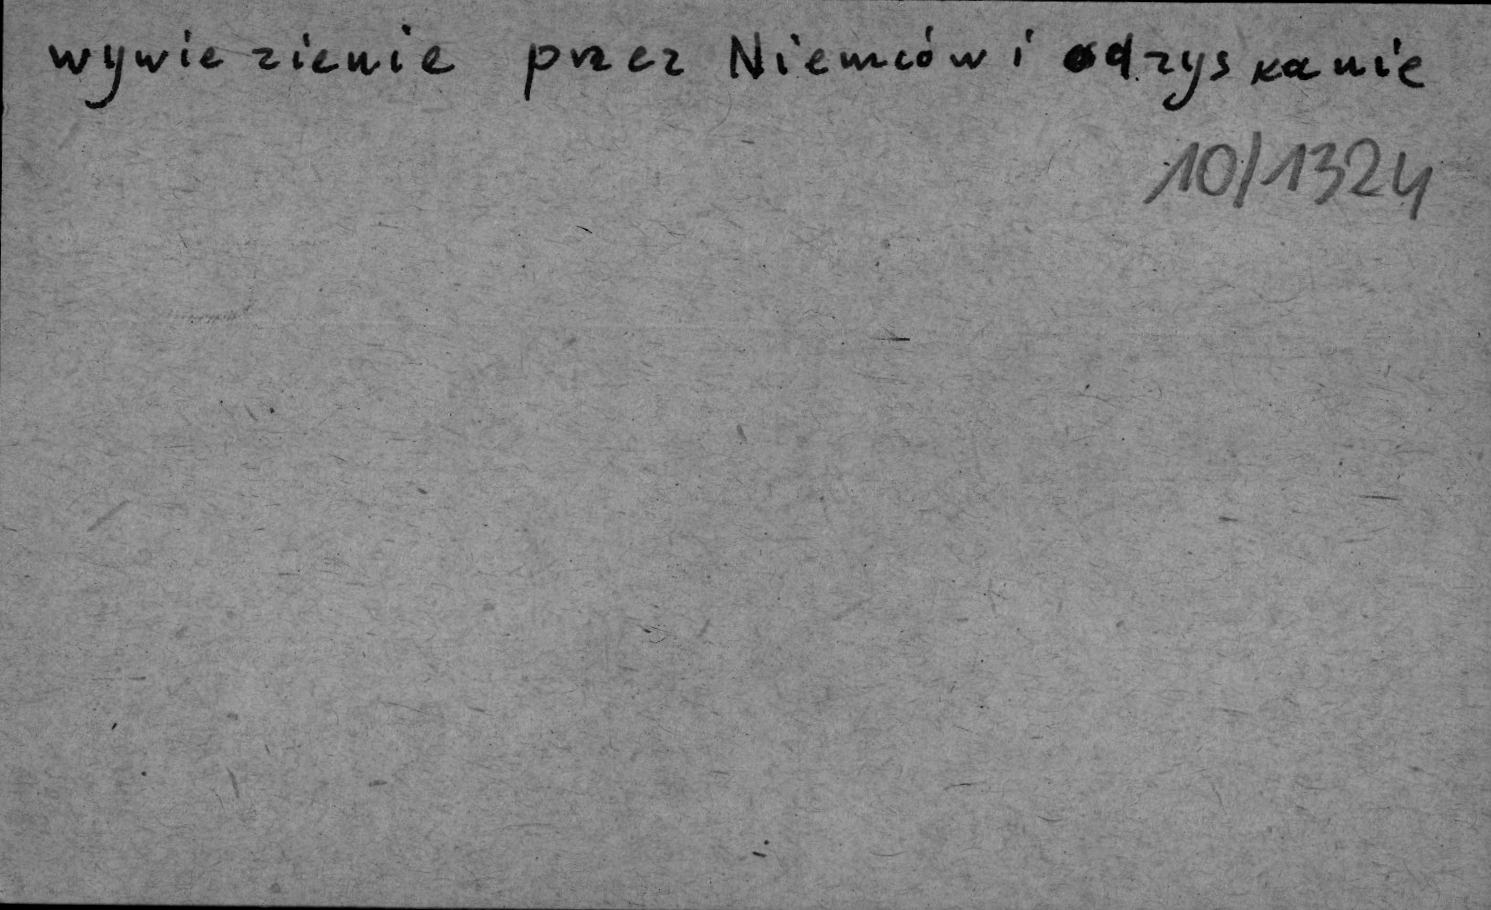 wywiezienie przez Niemców i odzyskanie
10/1324